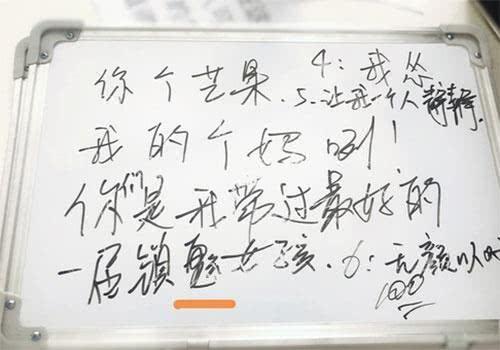 4：我怂
你个艺果.5、让我一个人静静.
我的个妈咧！
你们是我带过最好的
一届镇女孩.6：无颜以对
100